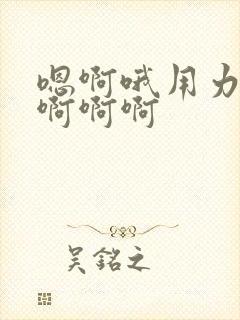 嗯啊哦用力
啊啊啊
吴銘之